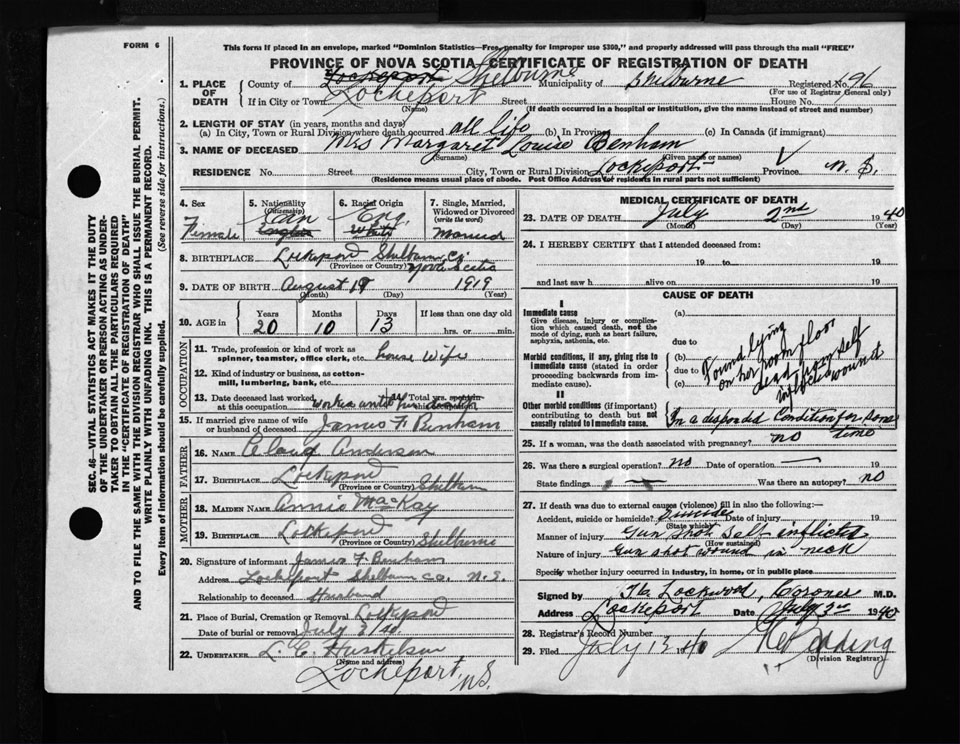 FORM 6
This form if placed in an envelope, marked "Dominion Statistics—Free, penalty for improper use $300," and properly addressed will pass through the mail "FREE"
PROVINCE OF NOVA SCOTIA CERTIFICATE OF REGISTRATION OF DEATH
1. PLACE OF DEATH
County of Lockeport Shelburne Municipality of Shelburne Registered No. 196
(For use of Registrar General only)
If in City or Town Lockeport Street House No.
(Name) (If death occurred in a hospital or institution, give the name instead of street and number)
2. LENGTH OF STAY (in years, months and days)
(a) In City, Town or Rural Division where death occurred all life (b) In Province (c) In Canada (if immigrant)
3. NAME OF DECEASED Mrs Margaret Louise Benham
(Surname) (Given name or names)
RESIDENCE No. Street City, Town or Rural Division Lockeport Province N.S.
(Residence means usual place of abode. Post Office Address for residents in rural parts not sufficient)
4. Sex 5. Nationality (Citizenship) 6. Racial Origin 7. Single, Married, Widowed or Divorced (write the word)
Female Can English Eng White Married
8. BIRTHPLACE Lockeport Shelburn Co. Nova Scotia
(Province or Country)
9. DATE OF BIRTH August 19 1919
(Month) (Day) (Year)
10. AGE in Years Months Days If less than one day old
20 10 13 hrs. or min.
OCCUPATION
11. Trade, profession or kind of work as spinner, teamster, office clerk, etc. house wife
12. Kind of industry or business, as cotton-mill, lumbering, bank, etc.
13. Date deceased last worked at this occupation worked until her death
15. If married give name of wife or husband of deceased James F Benham
FATHER
16. NAME Claud Anderson
17. BIRTHPLACE Lockeport Shelburn
(Province or Country)
MOTHER
18. MAIDEN NAME Annie MacKay
19. BIRTHPLACE Lockeport Shelburne
(Province or Country)
20. Signature of informant James F Benham
Address Lockeport Shelburn Co. N.S.
Relationship to deceased Husband
21. Place of Burial, Cremation or Removal Lockeport
Date of burial or removal July 3/40
22. UNDERTAKER L. E.
(Name and address)
Lockeport, N.S.
MEDICAL CERTIFICATE OF DEATH
23. DATE OF DEATH July 2nd 1940
(Month) (Day) (Year)
24. I HEREBY CERTIFY that I attended deceased from:
19 to 19
and last saw h alive on 19
CAUSE OF DEATH
I
Immediate cause
Give disease, injury or complication which caused death, not the mode of dying, such as heart failure, asphyxia, asthenia, etc.
Morbid conditions, if any, giving rise to immediate cause (stated in order proceeding backwards from immediate cause).
(a)
due to
(b)
due to
(c)
Found lying
on her room floor
dead from self
inflicted wound
II
Other morbid conditions (if important) contributing to death but not causally related to immediate cause.
In a desponded condition for some time
25. If a woman, was the death associated with pregnancy? no
26. Was there a surgical operation? no Date of operation 19
State findings Was there an autopsy? no
27. If death was due to external causes (violence) fill in also the following:
Accident, suicide or homicide? Suicide Date of injury 19
(State which)
Manner of injury Gun shot self inflicted
(How sustained)
Nature of injury Gun shot wound in neck
Specify whether injury occurred in industry, in home, or in public place
Signed by Lockwood, Coroner M.D.
Address Lockeport Date July 3rd 1940
28. Registrar's Record Number
29. Filed July 13 1940
(Division Registrar)
SEC. 46—VITAL STATISTICS ACT MAKES IT THE DUTY
OF THE UNDERTAKER OR PERSON ACTING AS UNDERTAKER
TO OBTAIN ALL THE PARTICULARS REQUIRED
IN THE "CERTIFICATE OF REGISTRATION OF DEATH"
AND TO FILE THE SAME WITH THE DIVISION REGISTRAR WHO SHALL ISSUE THE BURIAL PERMIT.
WRITE PLAINLY WITH UNFADING INK. THIS IS A PERMANENT RECORD.
Every item of information should be carefully supplied. (See reverse side for instructions.)